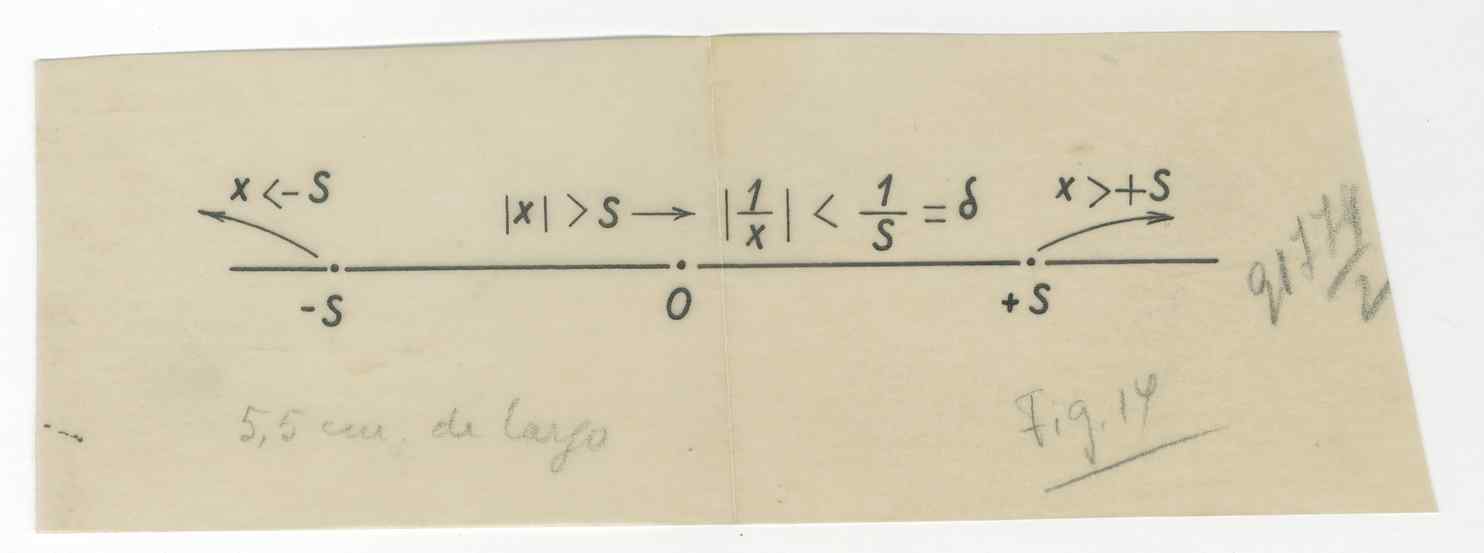 x <- S
|x| > S → |1/x| < 1/S = δ
x > +S
-S 0 +S
5,5 cm. de largo
Fig. 14